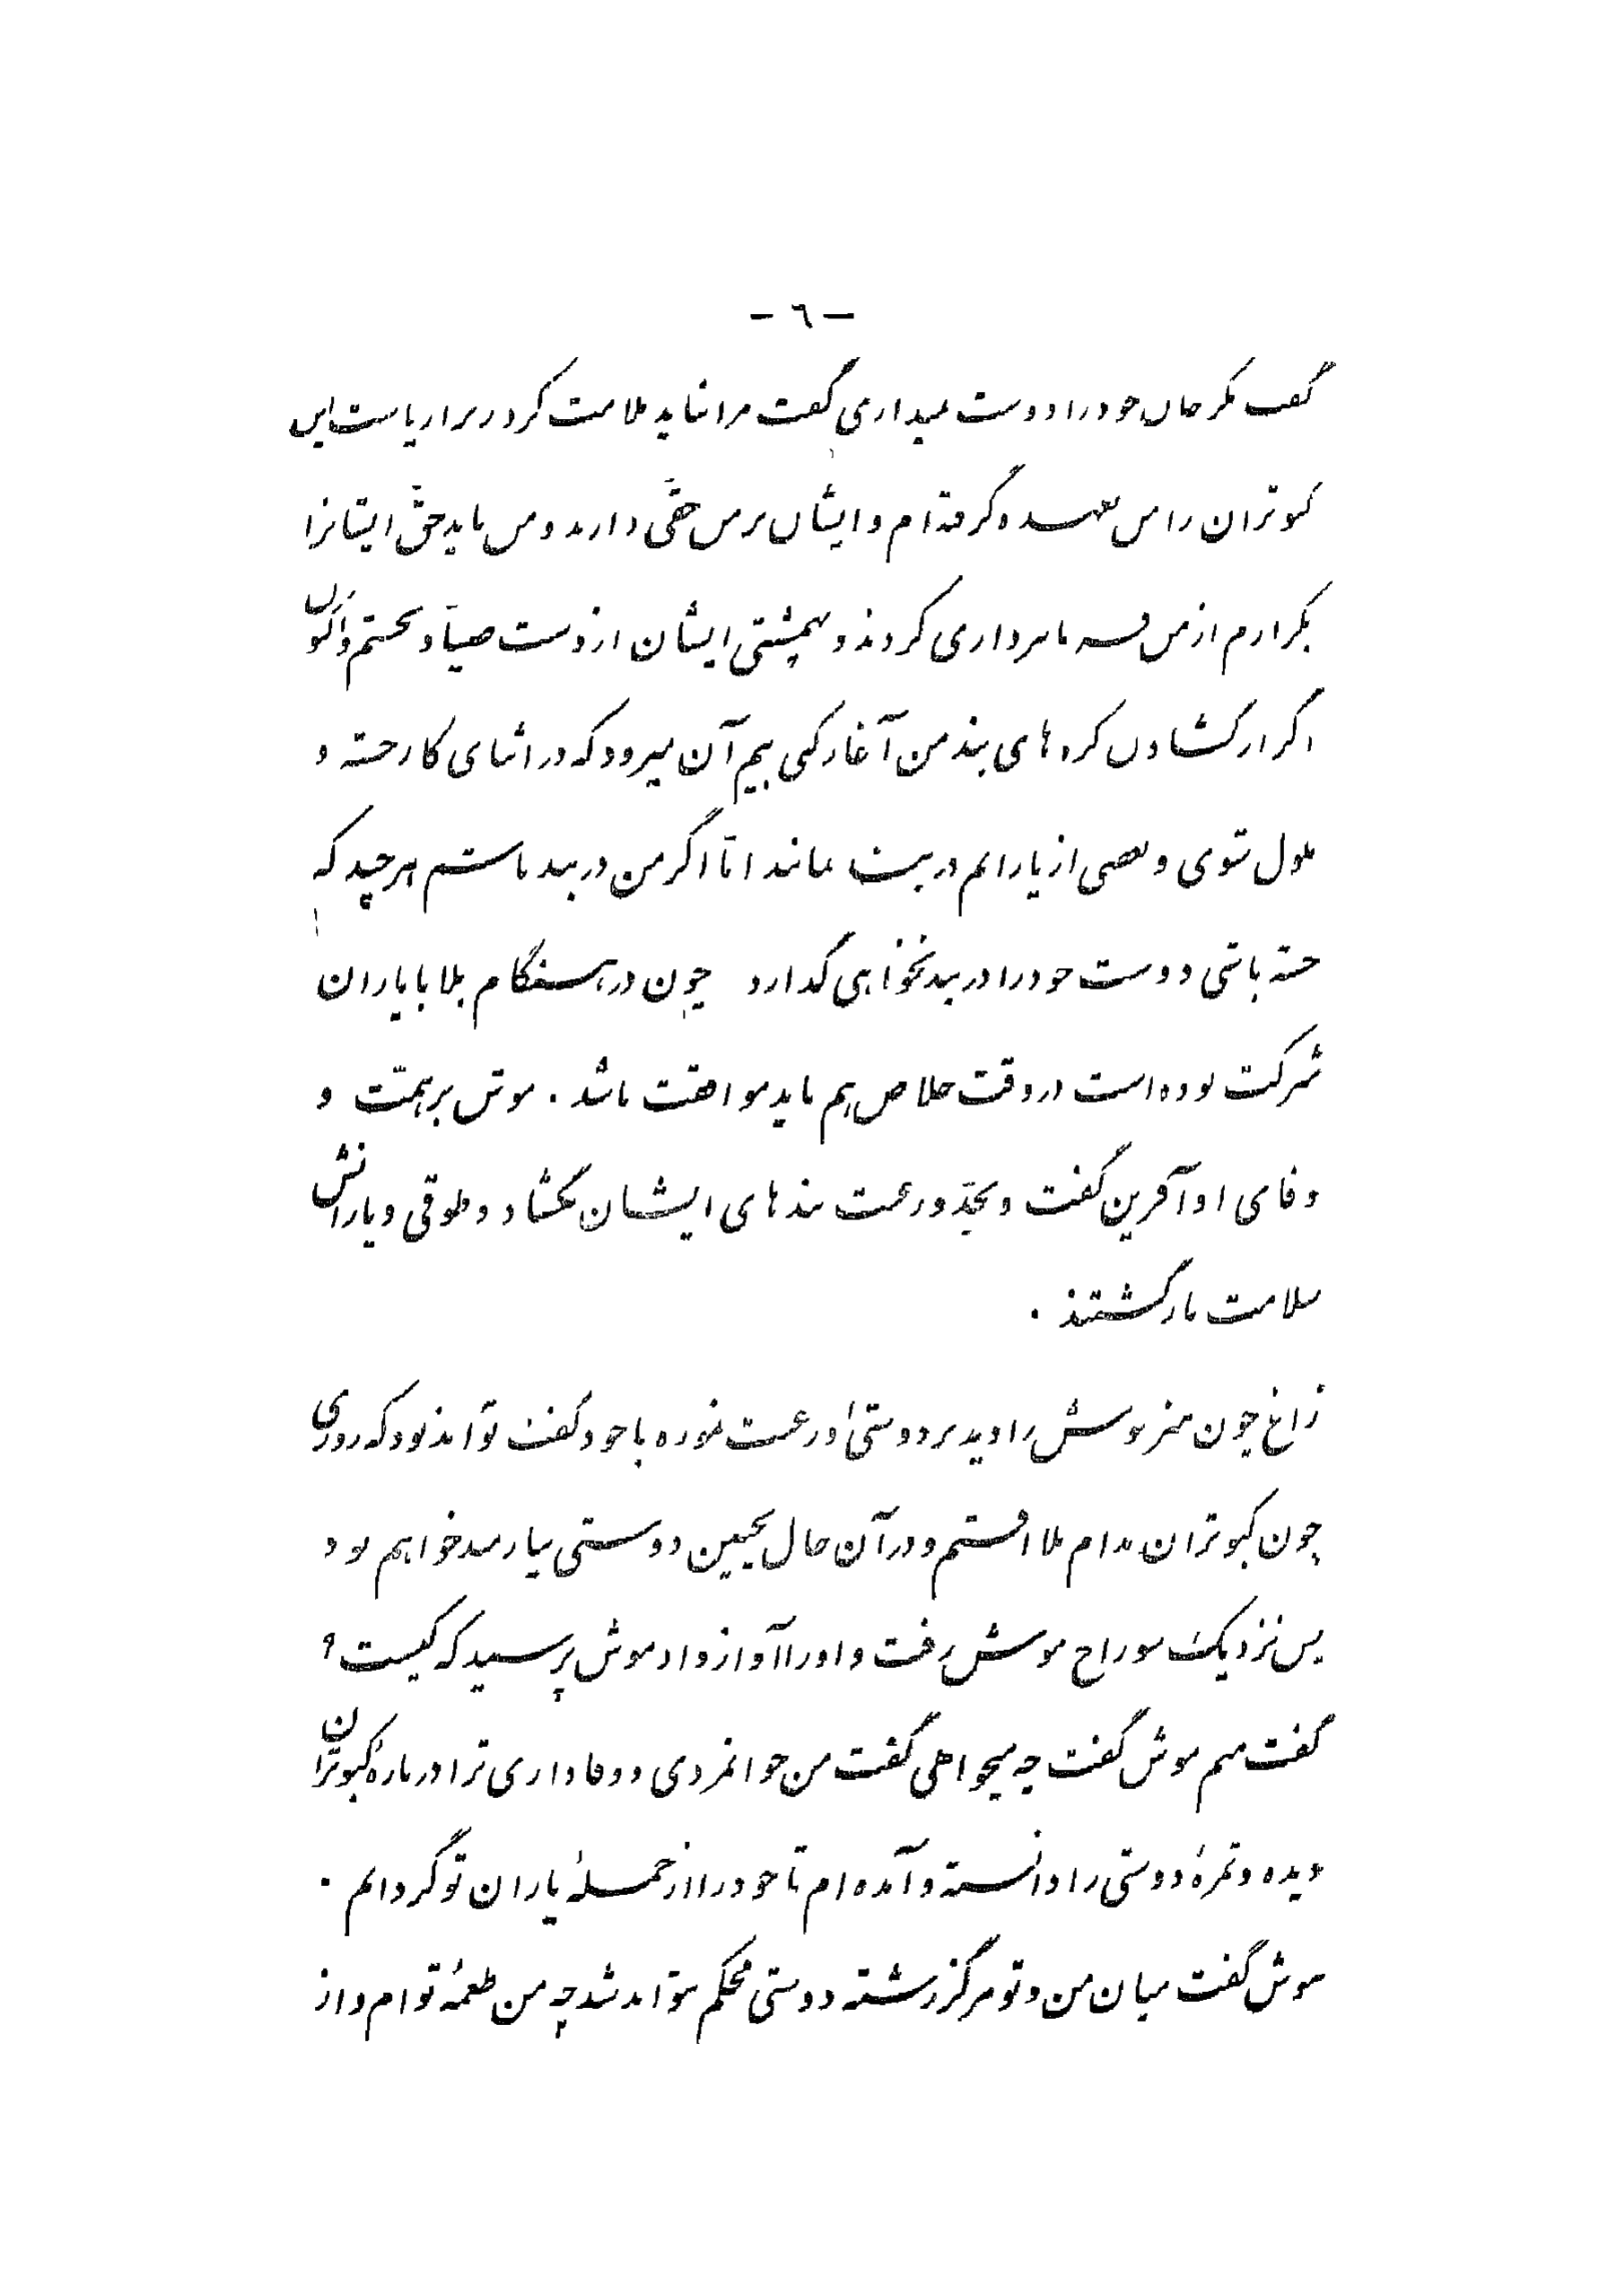 - ٦ -
گفت مگر جان خود را دوست نمیداری گفت مرا نباید ملامت کرد زیرا ریاست این
کبوتران را من بعهده گرفته‌ام و ایشان بر من حقّی دارند و من باید حقّ ایشانرا
بگزارم از من فرمانبرداری کردند و بهمپشتی ایشان از دست صیّاد بجستم و اکنون
اگر از گشادن گره‌های بند من آغاز کنی بیم آن میرود که در اثنای کار خسته و
ملول شوی و بعضی از یارانم در بند بمانند امّا اگر من در بند باشم هر چند که
خسته باشی دوست خود را در بند نخواهی گذارد چون در هنگام بلا با یاران
شرکت بوده است در وقت خلاص هم باید موافقت باشد . موش بر همّت و
وفای او آفرین گفت و بجدّ و رغبت بندهای ایشان بگشاد و طوقی و یارانش
سلامت بازگشتند .
زاغ چون هنر موش را دید بر دوستی او رغبت نموده با خود گفت تواند بود که روزی
چون کبوتران بدام بلا افتم و در آن حال بچنین دوستی نیازمند خواهم بود
پس نزدیک سوراخ موش رفت و او را آواز داد موش پرسید که کیست ؟
گفت منم موش گفت چه میخواهی گفت من جوانمردی و وفاداری ترا درباره کبوتران
دیده و ثمرهٔ دوستی را دانسته و آمده‌ام تا خود را از جملهٔ یاران تو گردانم .
موش گفت میان من و تو هرگز رشته دوستی محکم نتواند شد چه من طعمهٔ توام و از